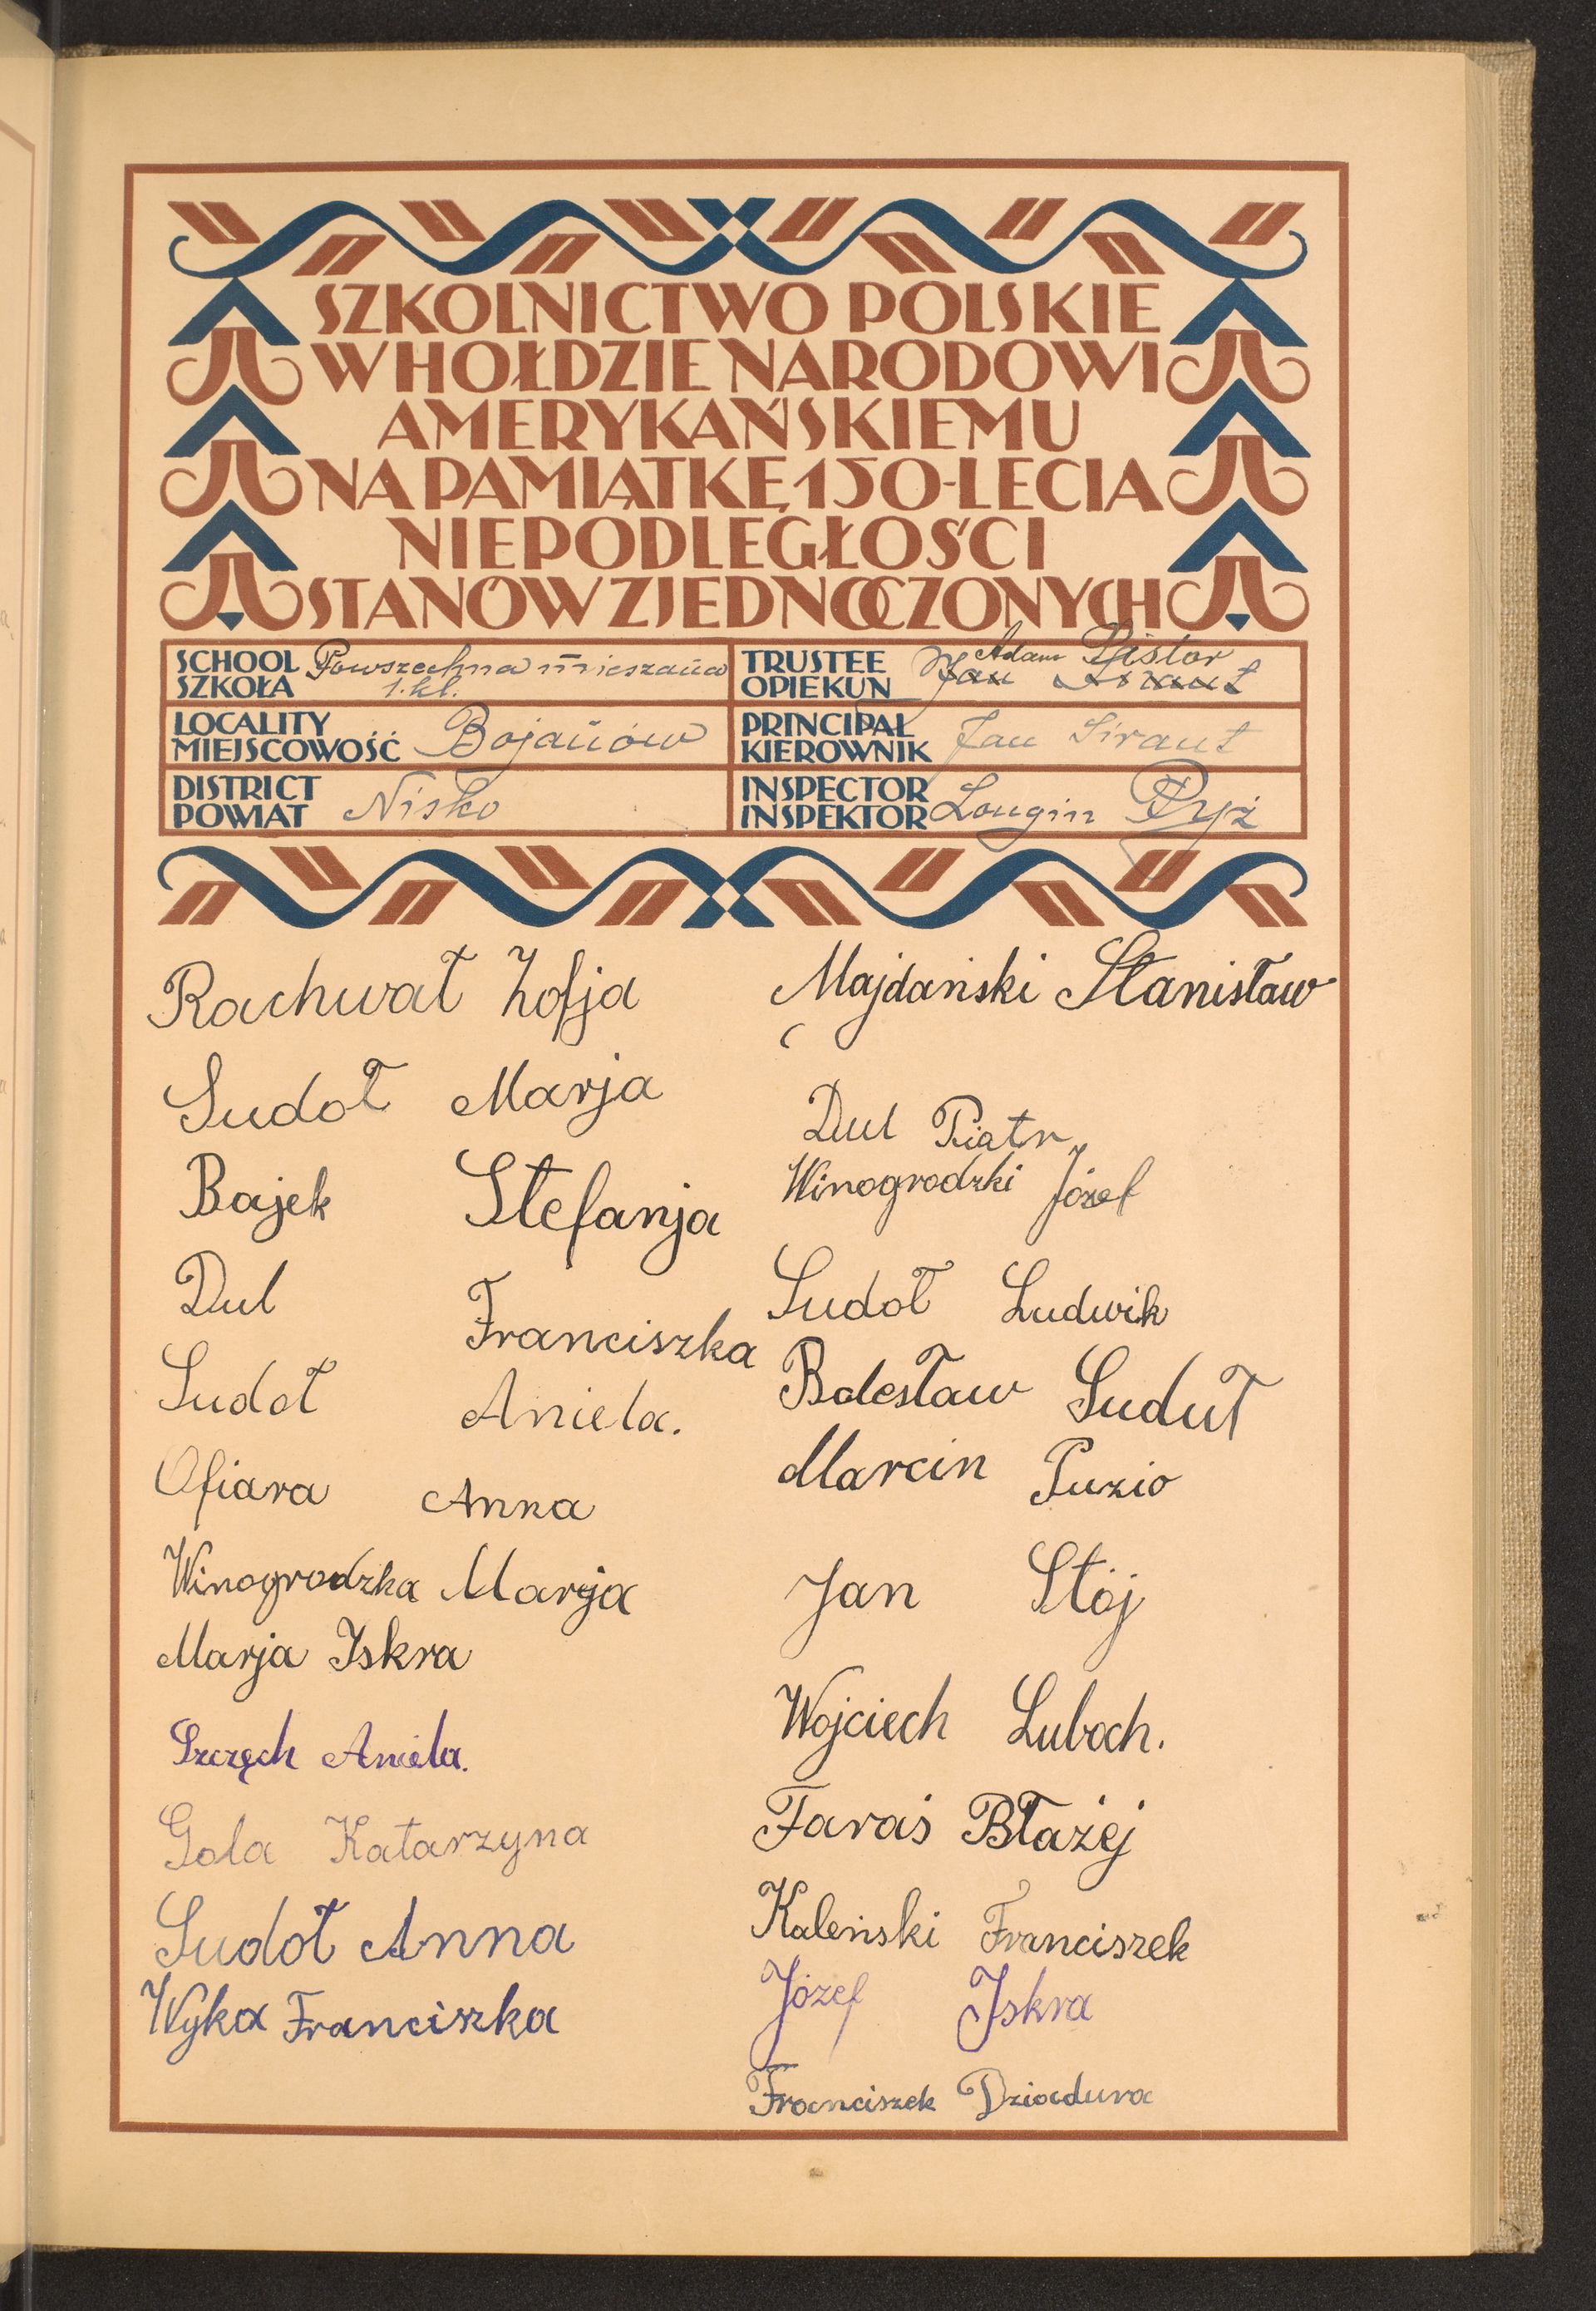 SZKOLNICTWO POLSKIE
W HOŁDZIE NARODOWI
AMERYKAŃSKIEMU
NA PAMIĄTKĘ 150-LECIA
NIEPODLEGŁOŚCI
STANÓW ZJEDNOCZONYCH
SCHOOL
SZKOŁA
Powszechna mieszana
1. kl.
TRUSTEE
OPIEKUN
Adam Pistor
Jan Sirant
LOCALITY
MIEJSCOWOŚĆ
Bojanów
PRINCIPAL
KIEROWNIK
Jan Sirant
DISTRICT
POWIAT
Nisko
INSPECTOR
INSPEKTOR
Longin Ryż
Rachwał Zofja
Sudoł Marja
Bajek Stefanja
Dul Franciszka
Sudoł Aniela.
Ofiara Anna
Winogrodzka Marja
Marja Iskra
Szczęch Aniela.
Gola Katarzyna
Sudoł Anna
Wyka Franciszka
Majdański Stanisław
Dul Piotr
Winogrodzki Józef
Sudoł Ludwik
Bolesław Suduł
Marcin Puzio
Jan Stój
Wojciech Luboch.
Faraś Błażej
Kaleński Franciszek
Józef Iskra
Franciszek Dziadura